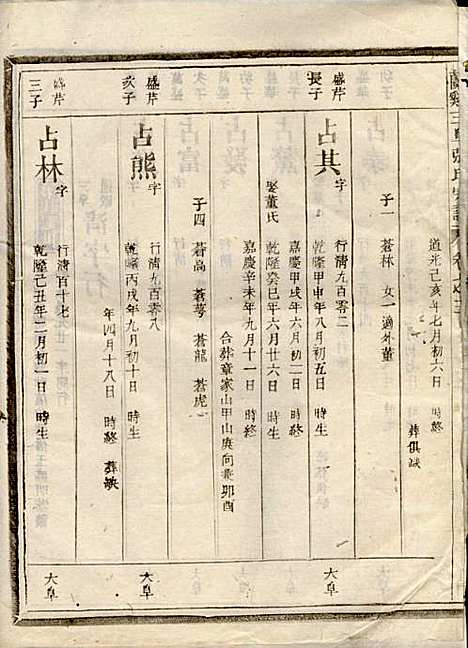 道光己亥年七月初六日 時終 葬俱缺
子一 蒼林 女一 適外董
盛芹
長子
占其 字 行清九百零二 大阜
乾隆甲申年八月初五日 時生
嘉慶甲戌年六月初二日 時終
娶董氏 乾隆癸巳年六月廿六日 時生
嘉慶辛未年九月十一日 時終
合葬章家山甲山庚向兼卯酉
子四 蒼高 蒼萼 蒼龍 蒼虎
盛芹
次子
占熊 字 行清九百零八 大阜
乾隆丙戌年九月初十日 時生
年四月十八日 時終 葬缺
盛芹
三子
占林 字 行清百十七 大阜
乾隆己丑年二月初一日 時生